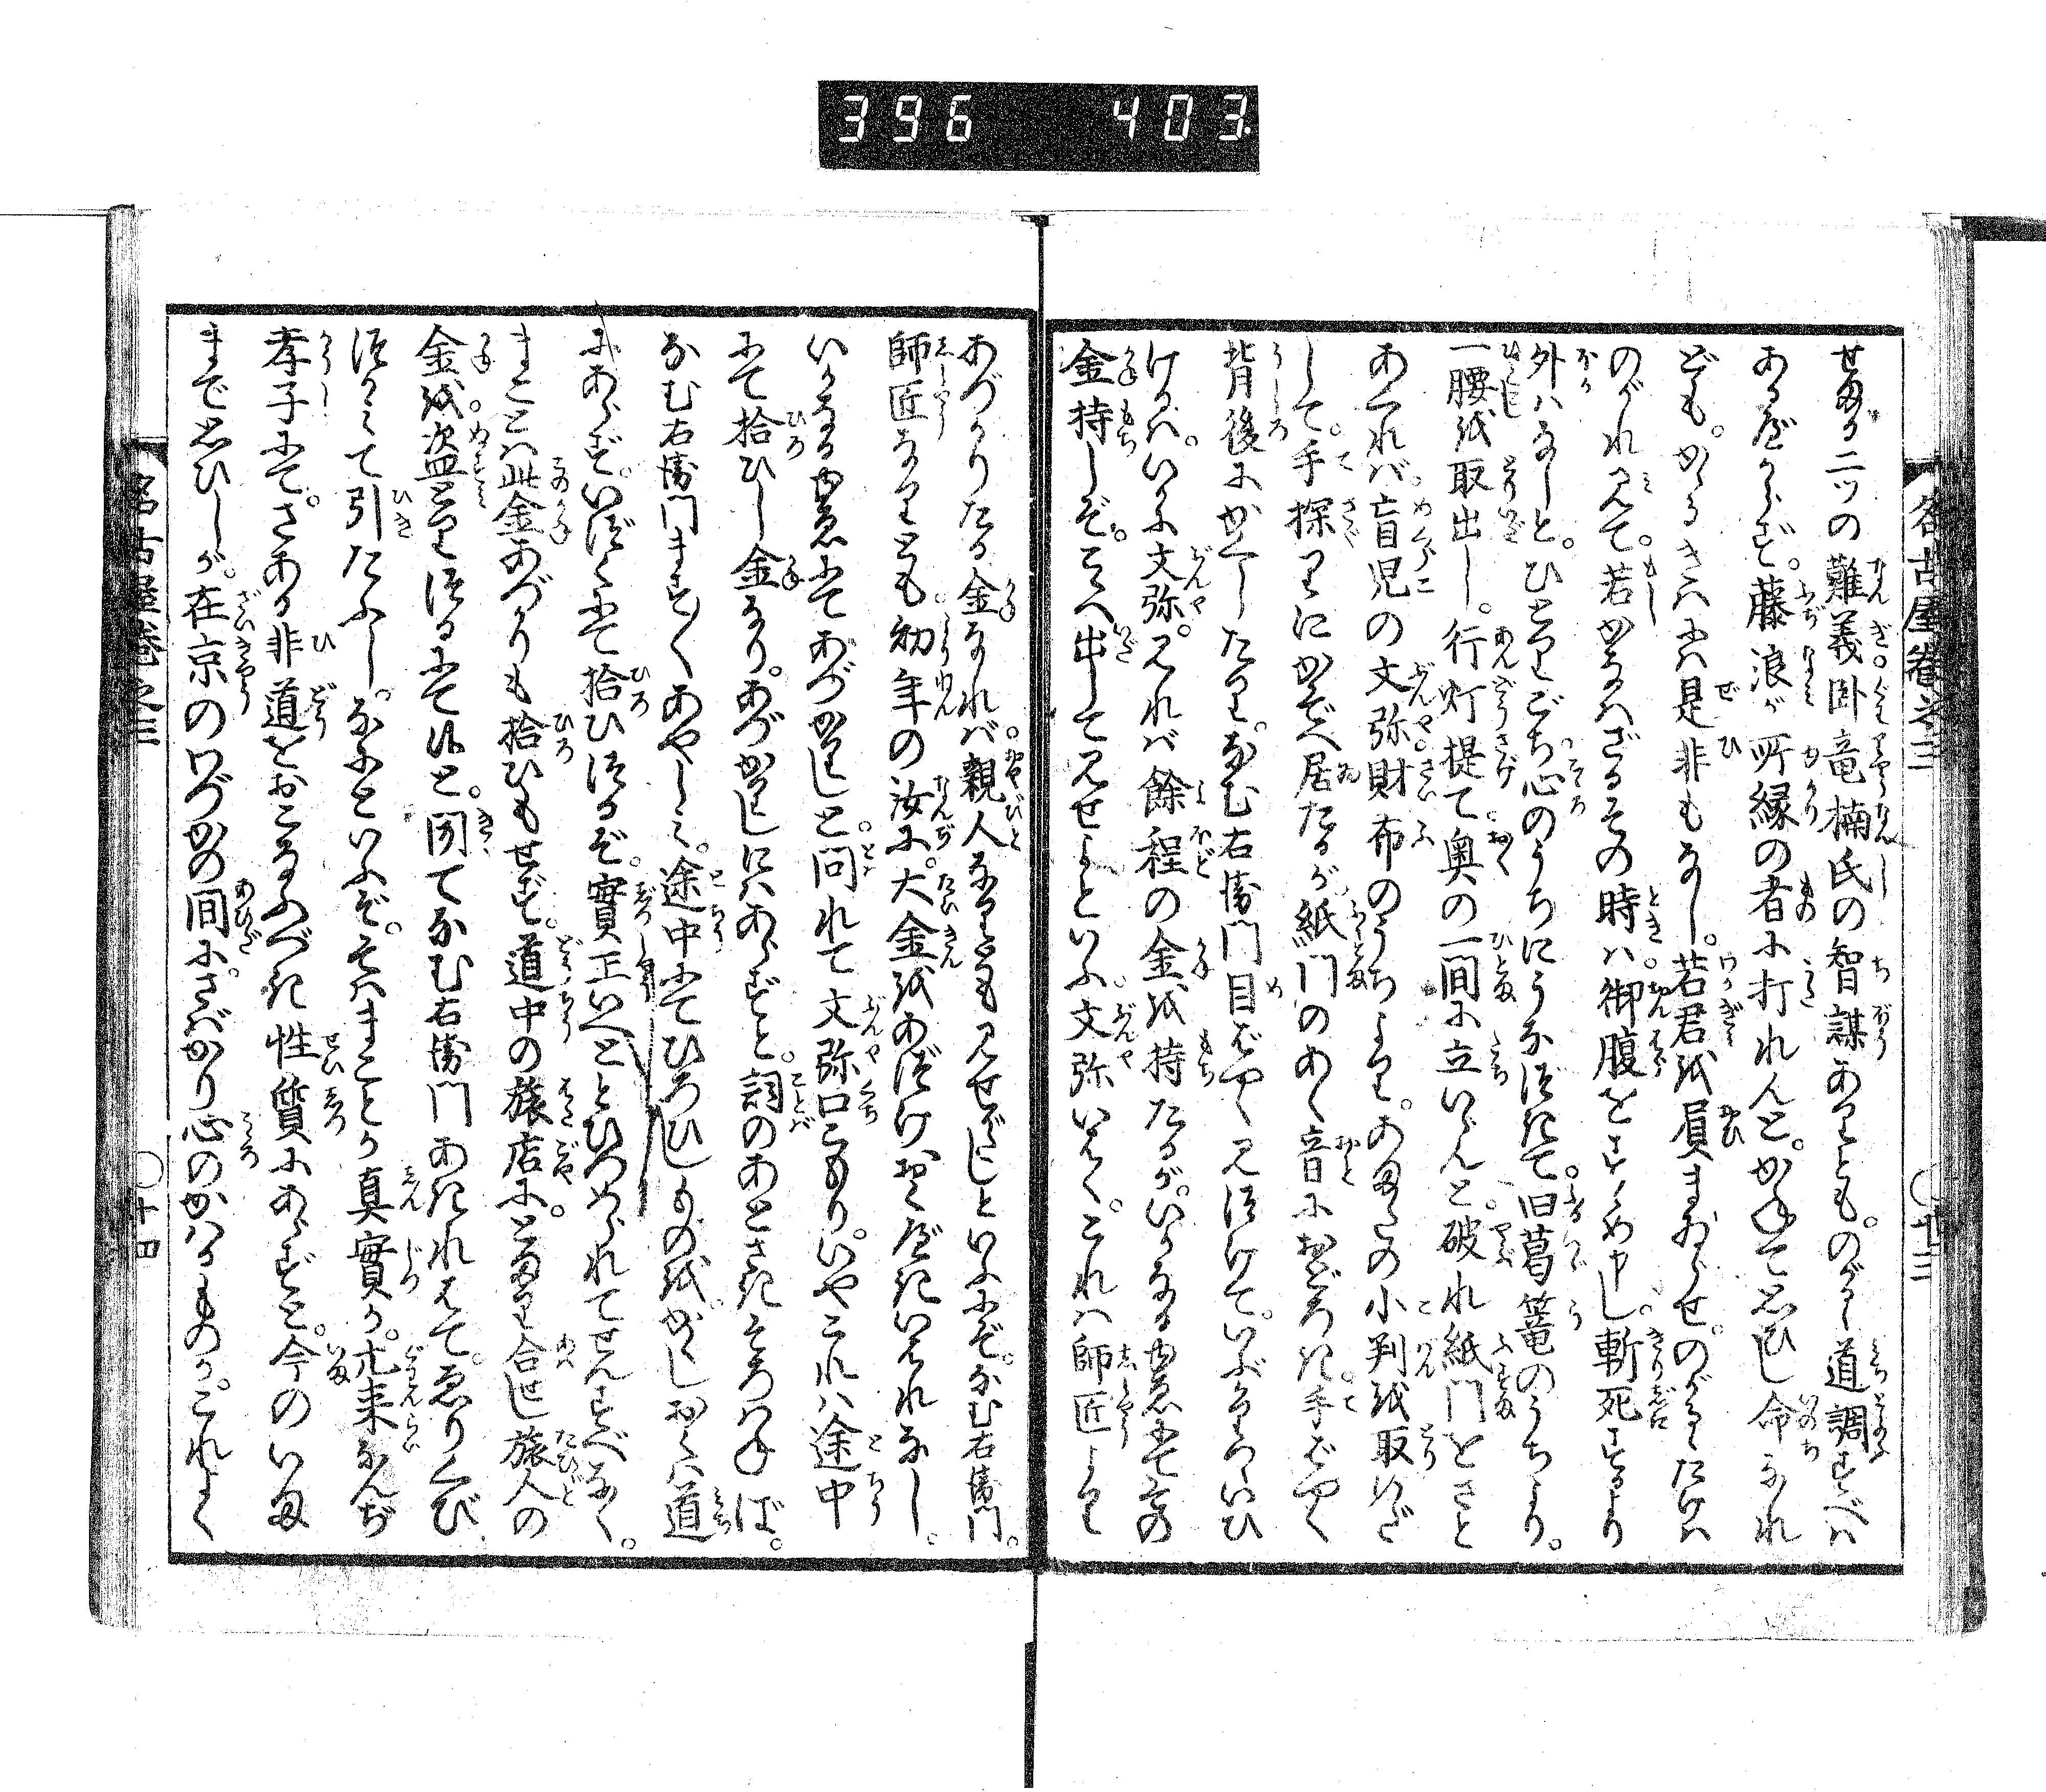 396 403
せまる二ツの難義臥竜楠氏の智謀ありとも。のがるゝ道調すべは
あるべからず。藤浪が所縁の者に打れんと。かねて思ひし命なれ
ども。かゝるきはには是非もなし。若君を屓まゐらせ。のがるゝたけは
のがれ見て。若かなはざるその時は。御腹をすゝめ申し。斬死するより
外はなしと。ひとりごち心のうちにうなづきて。旧葛篭のうちより。
一腰を取出し。行灯提て。奥の一間に立いらんと。破れ紙門をさと
あくれば。盲児の文弥。財布のうちより。あまたの小判を取いだ
して。手探りにかぞへ居たるが。紙門のあく音におどろき。手ばやく
背後にかくしたり。なむ右衛門目ばやく見つけて。いぶかりつゝいひ
けるは。いかに文弥。見れば餘程の金を持たるが。いかなる由急にてその
金持しぞ。こゝへ出して見せよといふ。文弥いはく。これは師匠より
あづかりたる金なれば。親人なりとも見せがたしといふにぞ。なむ右衛門。
師匠なりとも。幼年の汝に。大金をあづけおくべきいはれなし。
いかなる由急にてあづかりしと。問れて文弥口ごもり。いやこれは途中
にて拾ひし金なり。あづかりしにはあらずと。詞のあとさきそろはねば。
なむ右衛門ますく あやしみ。途中にてひろひしものを。かくしおくは道
にあらず。いづくにて拾ひつるぞ。實正いへととひつめられてせんすべなく。
まことは此金あづかりも拾ひもせず。道中の旅店に。とまり合せし旅人の
金を。盗とりつるにて候と。聞てなむ右衛門あきれはて。ゑりくび
つかみて引たふし。なにといふぞ。そはまことか真實か。元来なんぢ
孝子にて。さある非道をおこなふべき性質にあらずと。今のいま
まで思ひしが。在京のわづかの間に。さばかり心のかはるものか。これよく
名古屋巻之三 〇十三
名古屋巻之三 〇十四